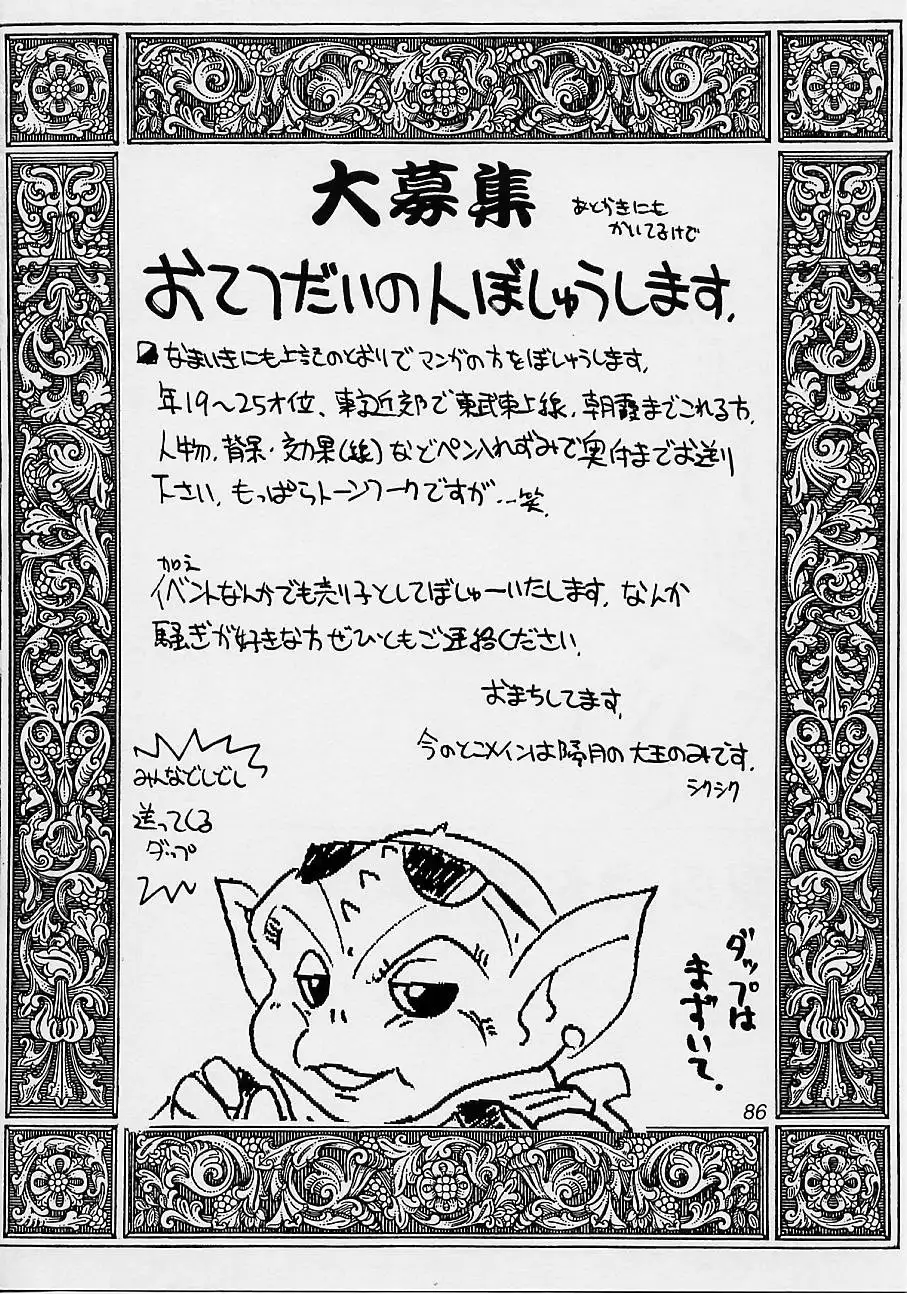 大募集
あとがきにも
かいてるけど
おてつだいの人ぼしゅうします.
なまいきにも上記のとおりでマンガの方をぼしゅうします.
年19〜25才位、東京近郊で東武東上線.朝霞までこれる方.
人物.背景.効果(線)などペン入れずみで奥付までお送り
下さい.もっぱらトーンワークですが...笑.
加え
イベントなんかでも売り子としてぼしゅーいたします.なんか
騒ぎが好きな方ぜひともご連絡ください.
おまちしてます.
今のとこメインは隔月の大王のみです.
シクシク
みんなどしどし
送ってくる
ダップ
ダップは
まずいて.
86